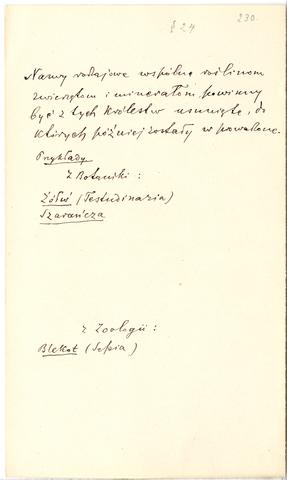 § 24
230.
Nazwy rodzajowe wspólne roślinom
zwierzętom i minerałom powinny
być z tych królestw usunięte, do
których później zostały wprowadzone.
Przykłady
z Botaniki :
Żółw (Testudinaria)
Szarańcza
z Zoologii :
Blekot (Sepia)